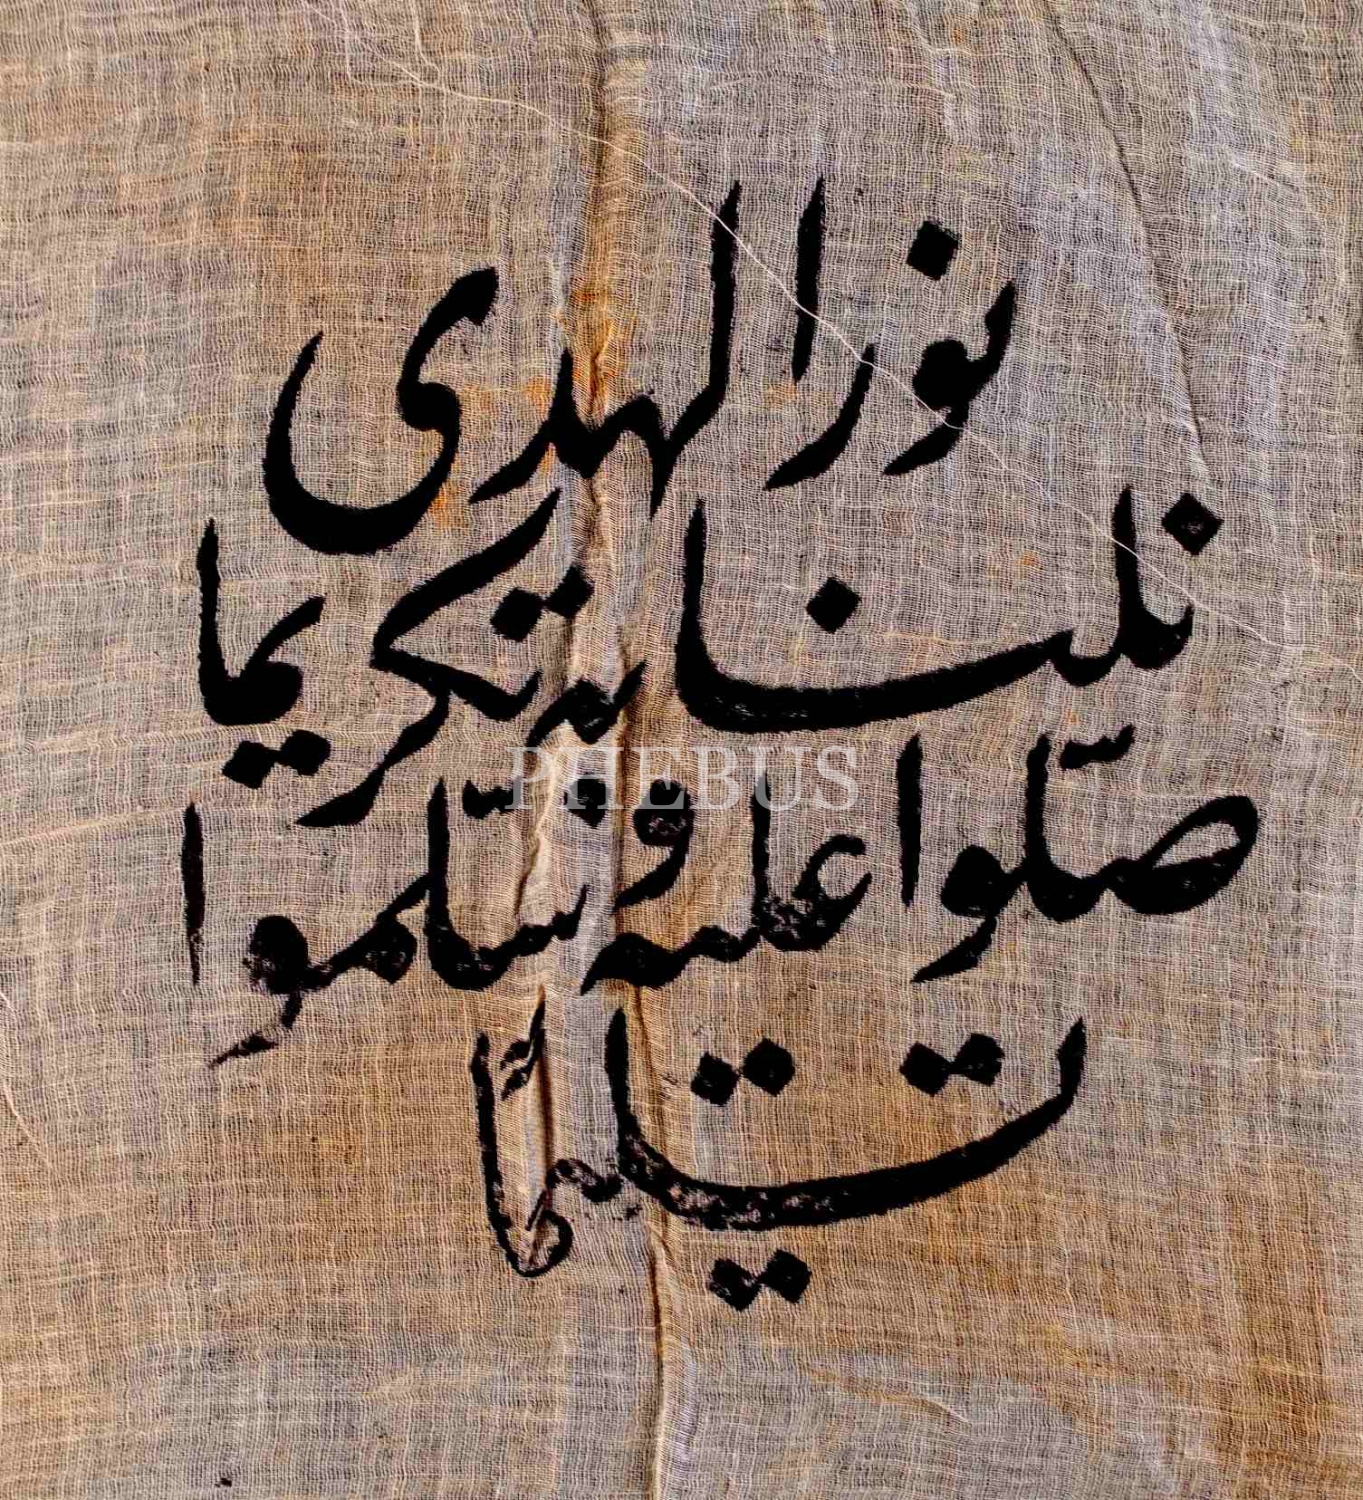 نور الهدى
نلنا به تكريما
صلّوا عليه وسلّموا
تسليمًا
PHEBUS